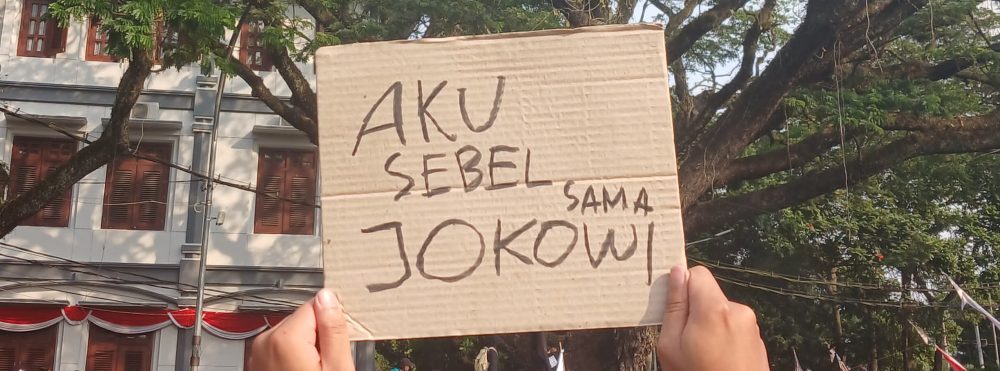 AKU
SEBEL SAMA
JOKOWI